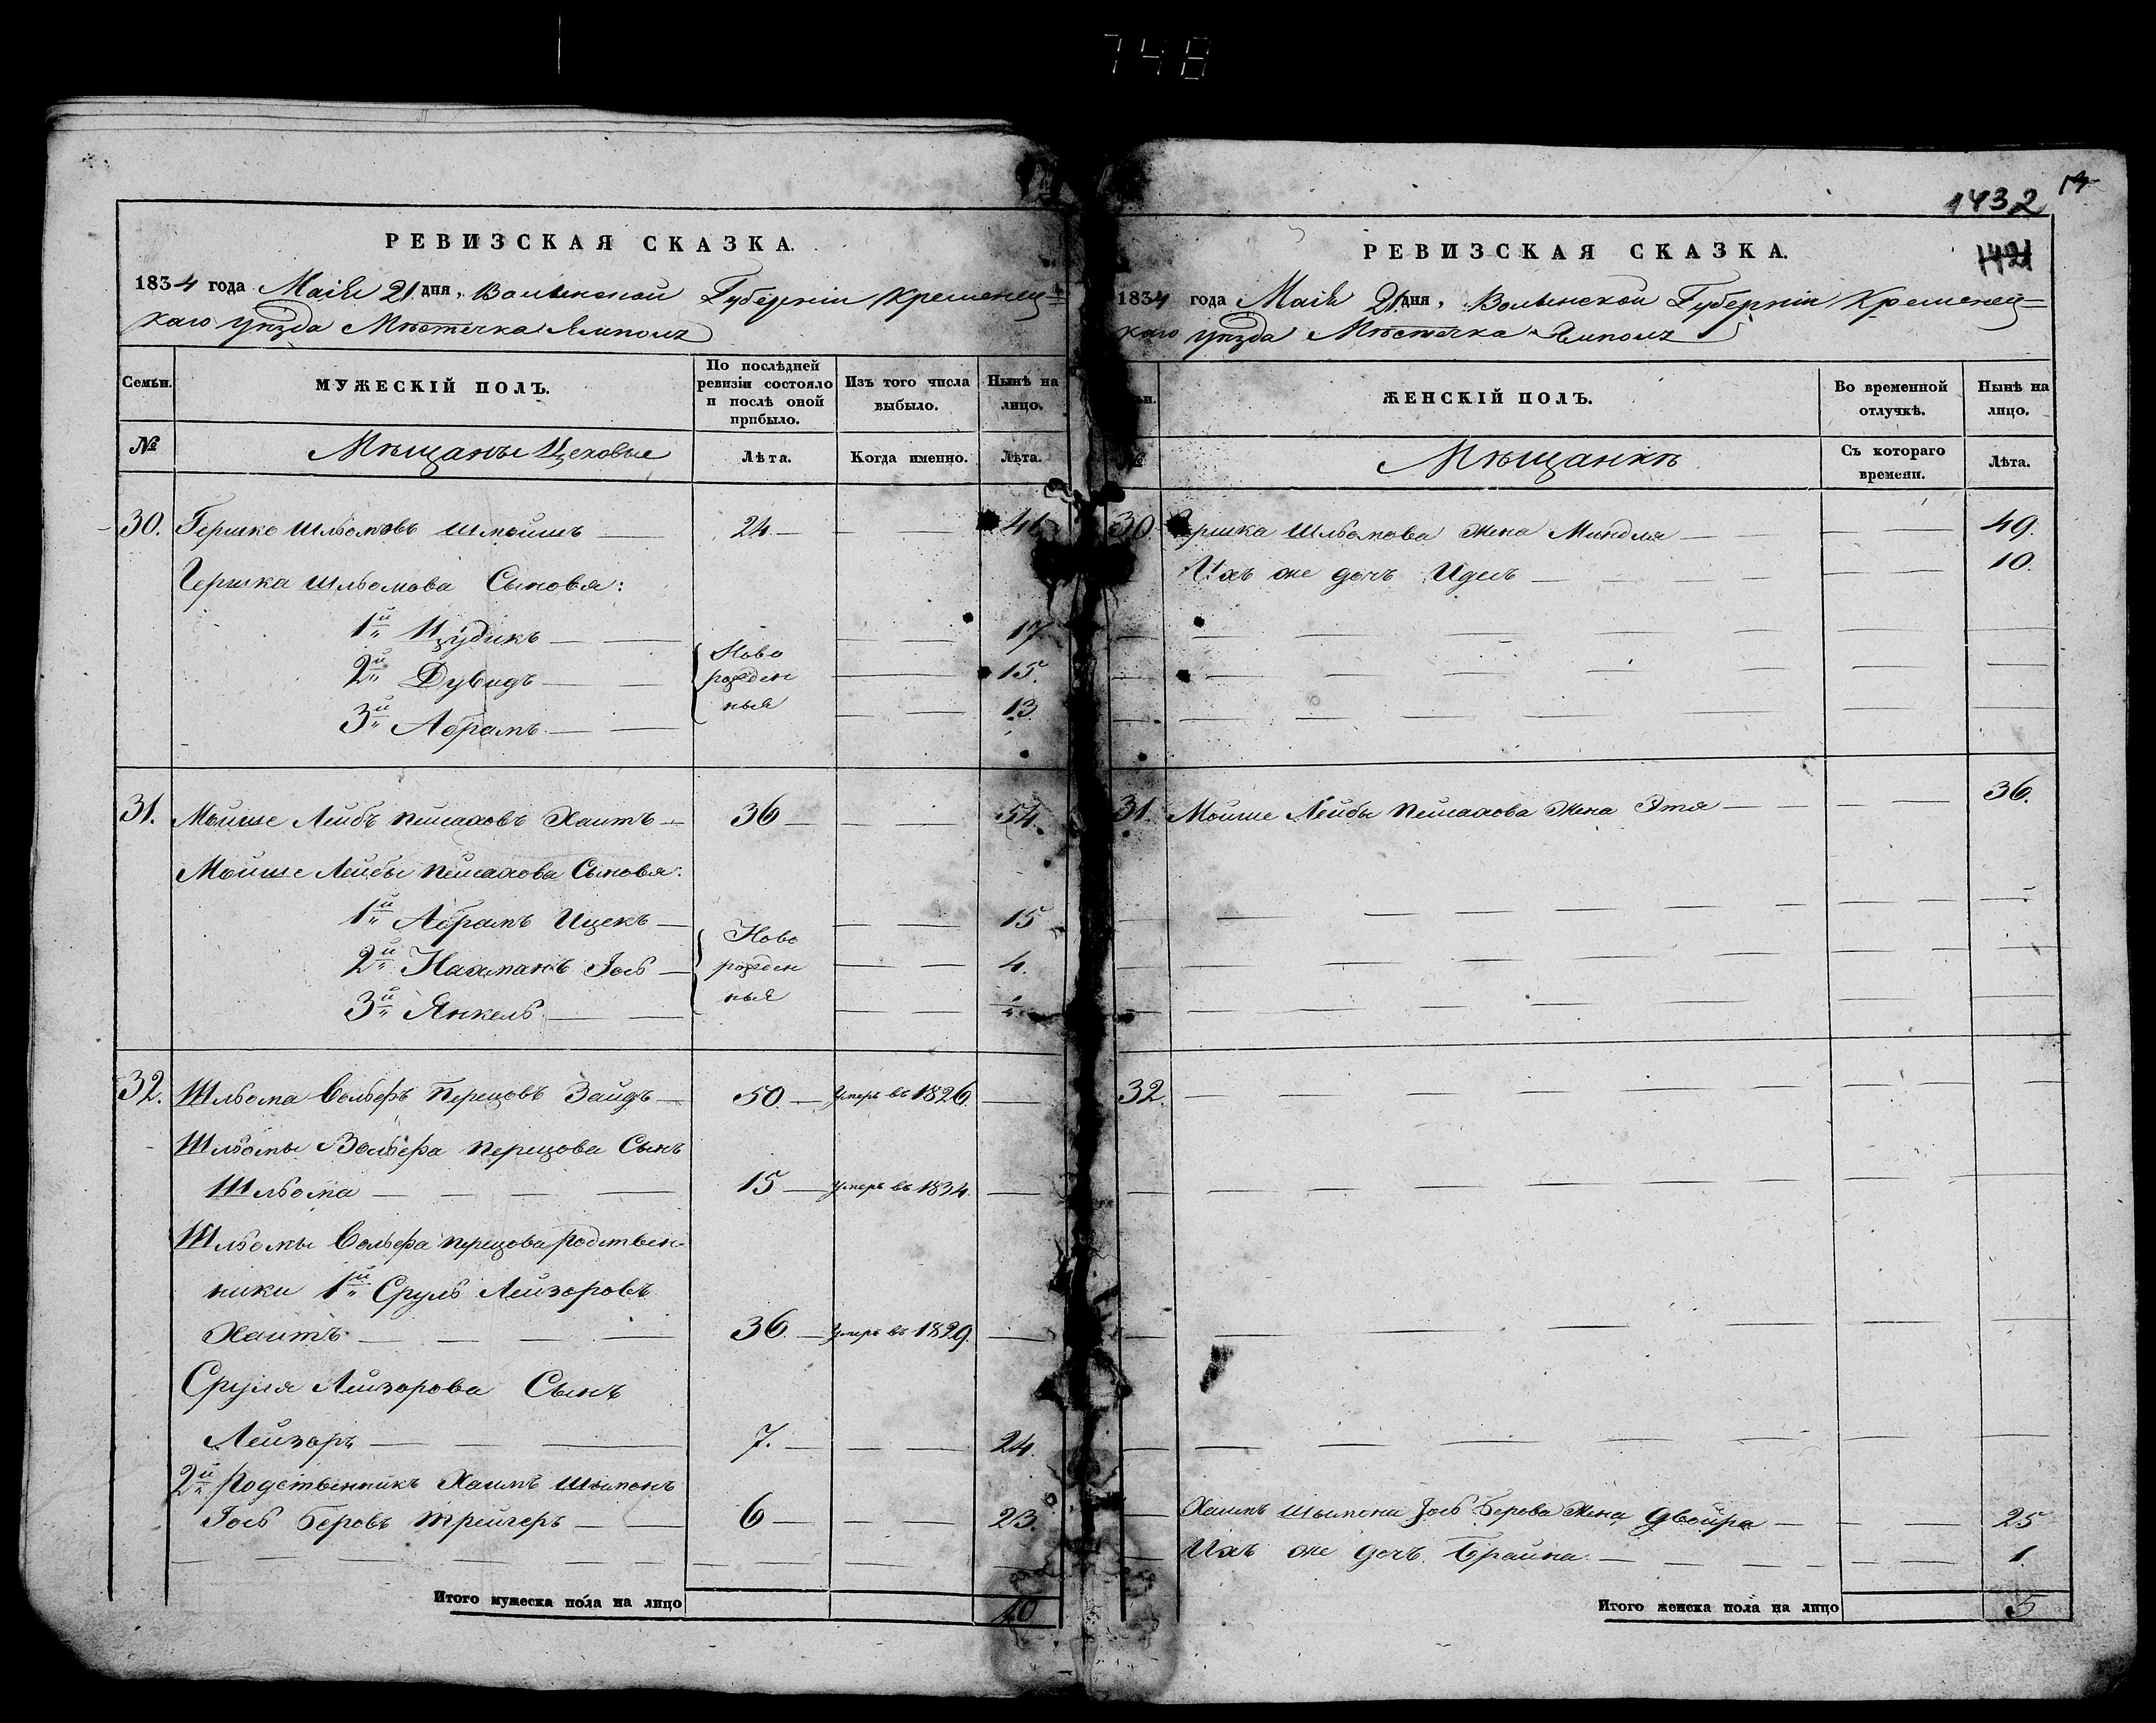 748
РЕВИЗСКАЯ СКАЗКА.
1834 года Маія 21 дня, Волынской Губерніи Кременец=
каго уѣзда Мѣстечка Ямполъ
Семьи.
МУЖЕСКІЙ ПОЛЪ.
По послѣдней ревизіи состояло и послѣ оной прибыло.
Изъ того числа выбыло.
Нынѣ на лицо.
№
Мѣщаны Цеховые
Лѣта.
Когда именно.
Лѣта.
30. Гершко Шльомовъ Шмоишъ 24. 41
Гершка Шльомова Сыновья:
1й Цудикъ 17
2й Дувидъ 15.
3й Абрамъ 13
Ново
рожден
ныя
31. Мойше Лейбъ Пейсаховъ Хаитъ 36 54.
Мойше Лейбы Пейсахова Сыновья:
1й Абрамъ Ицекъ 15
2й Нахманъ Іось 4.
3й Янкель
Ново
рожден
ныя
32. Шльома Вольфъ Перецовъ Зайдъ 50. Умеръ въ 1826.
Шльомы Вольфа Перецова Сынъ
Шльома 15 Умеръ въ 1834.
Шльомы Вольфа Перецова родствен-
ники 1й Сруль Лейзоровъ
Хаитъ 36. Умеръ въ 1829.
Сруля Лейзорова Сынъ
Лейзоръ 7. 24.
2й родственникъ Хаимъ Шымонъ
Іось Беровъ Трейгеръ 6 23.
Итого мужеска пола на лицо 10
1432
1421
РЕВИЗСКАЯ СКАЗКА.
1834 года Маія 21 дня, Волынской Губерніи Кременец=
каго уѣзда Мѣстечка Ямполъ
ЖЕНСКІЙ ПОЛЪ.
Во временной отлучкѣ.
Нынѣ на лицо.
№
Мѣщанкѣ
Съ котораго времени.
Лѣта.
30. Гершка Шльомова Жена Миндля 49.
Ихъ же дочь Идесъ 10.
31. Мойше Лейбы Пейсахова Жена Этя 36.
32.
Хаимъ Шымона Іось Берова Жена Двойра 25
Ихъ же дочь Брайна 1.
Итого женска пола на лицо 5